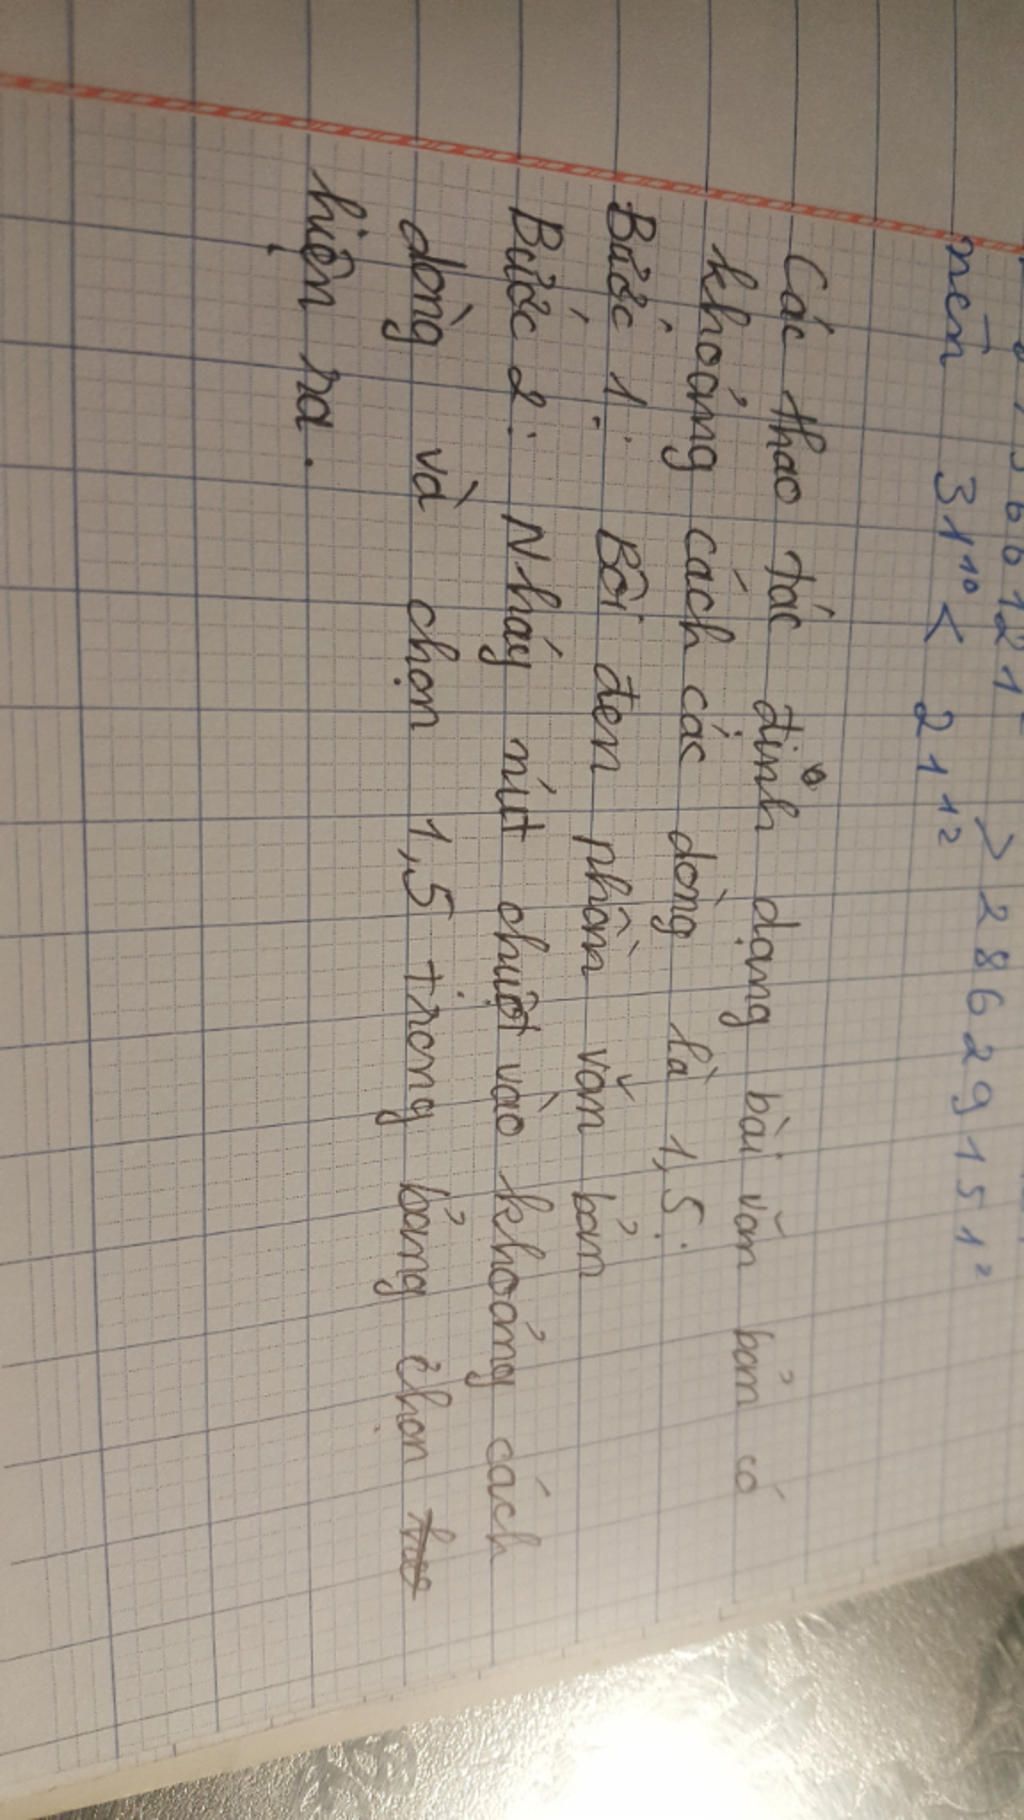 > 286291512
nên 31¹⁰ < 21¹²
Các thao tác định dạng bài văn bản có
khoảng cách các dòng là 1,5:
Bước 1: Bôi đen phần văn bản
Bước 2: Nháy nút chuột vào khoảng cách
dòng và chọn 1,5 trong bảng chọn
hiện ra.